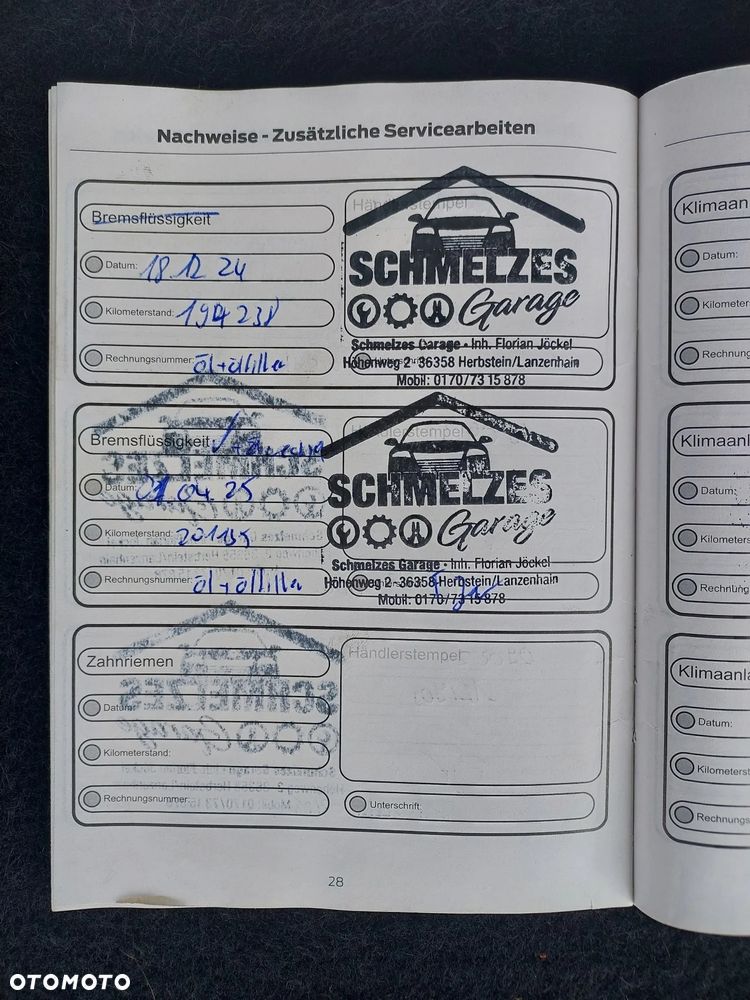 Nachweise - Zusätzliche Servicearbeiten
Bremsflüssigkeit
Datum: 18 12 24
Kilometerstand: 194 238
Rechnungsnummer: Öl + Ölfilter
Händlerstempel
SCHMELZES
Garage
Schmelzes Garage • Inh. Florian Jöckel
Höhenweg 2 · 36358 Herbstein/Lanzenhain
Mobil: 0170/73 15 878
Bremsflüssigkeit ✓
Datum: 01.04 25
Kilometerstand:
Rechnungsnummer: Öl + Ölfilter
Händlerstempel
SCHMELZES
Garage
Schmelzes Garage • Inh. Florian Jöckel
Höhenweg 2 - 36358 Herbstein/Lanzenhain
Mobil: 0170/73 15 878
Zahnriemen
Datum:
Kilometerstand:
Rechnungsnummer:
Händlerstempel
Unterschrift:
28
Klimaanl
Datum:
Kilometer
Rechnung
Klimaanl
Datum:
Kilometer
Rechnung
Klimaanla
Datum:
Kilometerst
Rechnungs
OTOMOTO